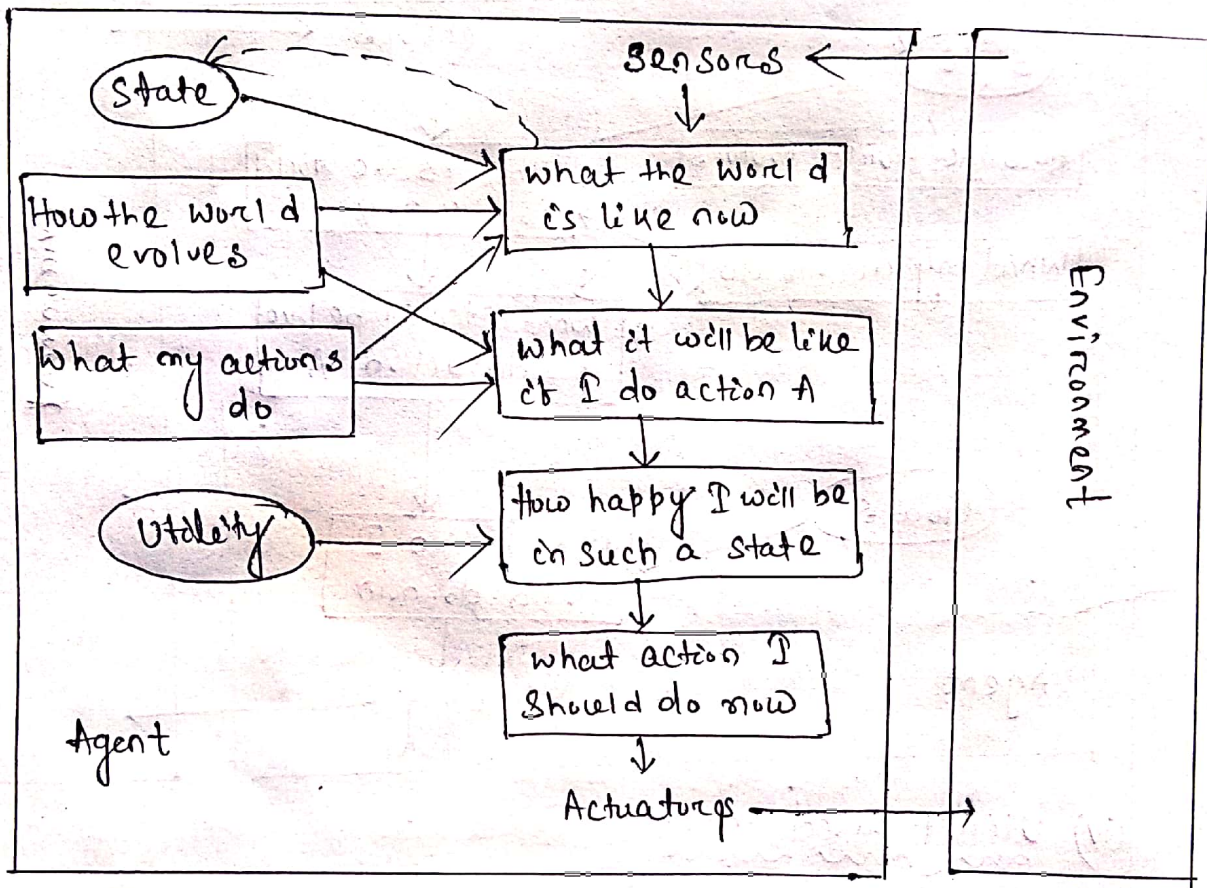 Sensors
State
what the world
is like now
How the world
evolves
What my actions
do
what it will be like
if I do action A
Utility
How happy I will be
in such a state
what action I
Should do now
Agent
Actuators
Environment